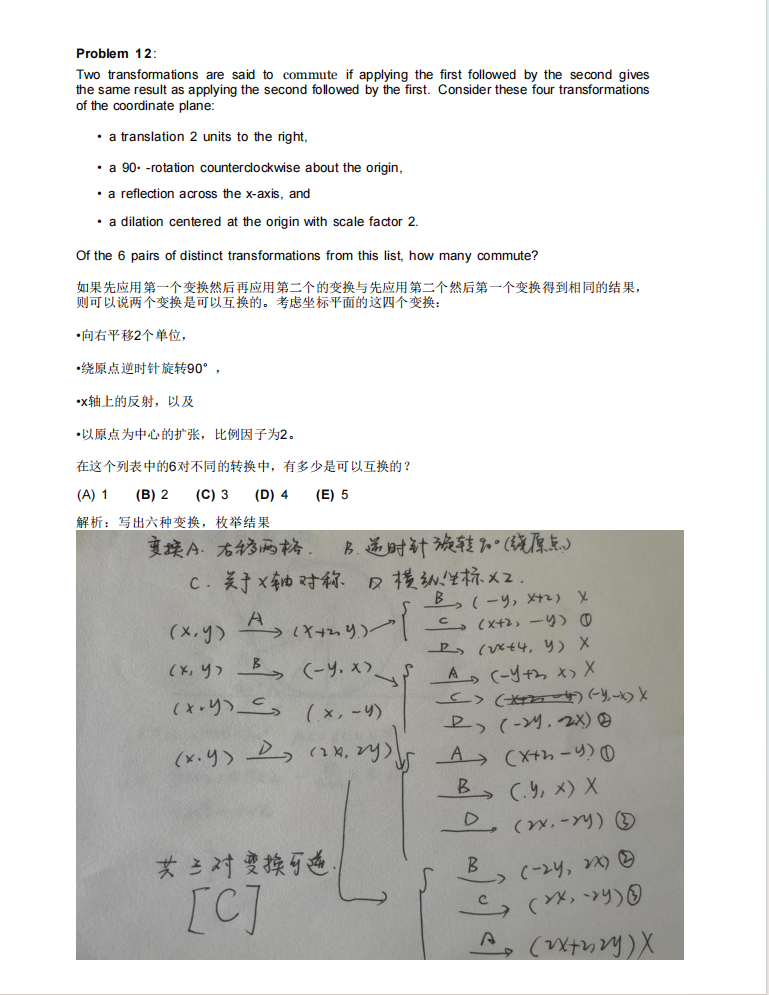 Problem 12:
Two transformations are said to commute if applying the first followed by the second gives
the same result as applying the second followed by the first. Consider these four transformations
of the coordinate plane:
• a translation 2 units to the right,
• a 90· -rotation counterclockwise about the origin,
• a reflection across the x-axis, and
• a dilation centered at the origin with scale factor 2.
Of the 6 pairs of distinct transformations from this list, how many commute?
如果先应用第一个变换然后再应用第二个的变换与先应用第二个然后第一个变换得到相同的结果，
则可以说两个变换是可以互换的。考虑坐标平面的这四个变换：
•向右平移2个单位，
•绕原点逆时针旋转90°，
•x轴上的反射，以及
•以原点为中心的扩张，比例因子为2。
在这个列表中的6对不同的转换中，有多少是可以互换的？
(A) 1 (B) 2 (C) 3 (D) 4 (E) 5
解析：写出六种变换，枚举结果
变换A. 右移两格. B. 逆时针旋转90°(绕原点)
C. 关于x轴对称. D 横纵坐标×2.
B→ (-y, x+2) X
(x,y) A→ (x+2,y) C→ (x+2, -y) ①
D→ (2x+4, y) X
(x,y) B→ (-y, x) A→ (-y+2, x) X
C→ (-y,-x) X
(x,y) C→ (x, -y) D→ (-2y, 2x) ②
(x,y) D→ (2x, 2y) A→ (x+2, -y) ①
B→ (y, x) X
D→ (2x, -2y) ③
共三对变换可逆. B→ (-2y, 2x) ②
[C] C→ (2x, -2y) ③
A→ (2x+2, 2y) X